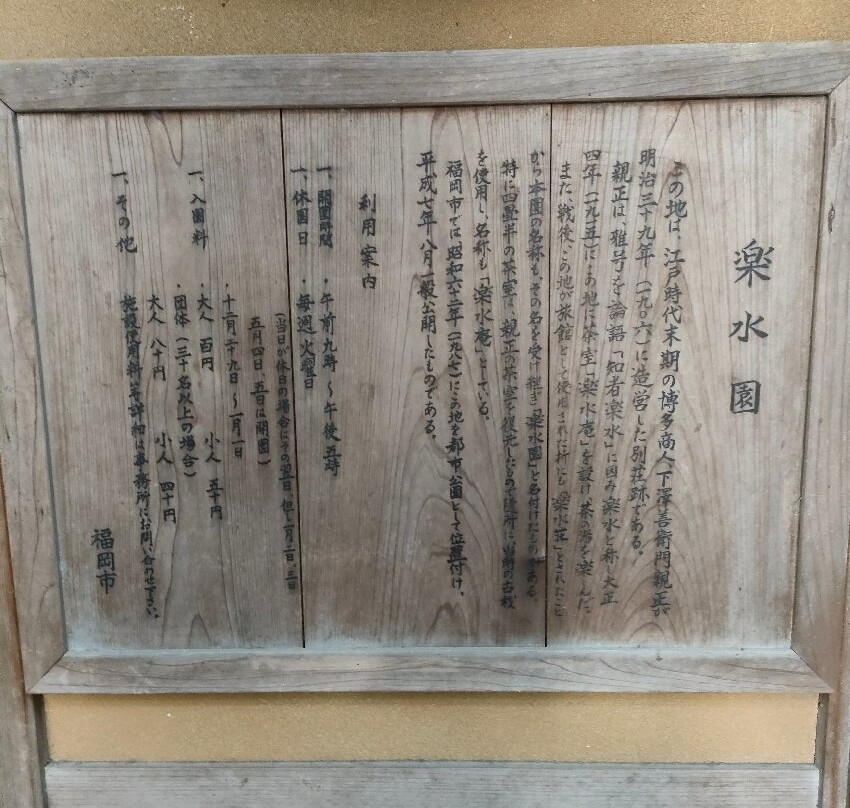 楽水園
この地は、江戸時代末期の博多商人、下澤善衛門親正が
明治三十九年(一九〇六)に造営した別荘跡である。
親正は、雅号を論語「知者楽水」に因み楽水と称し大正
四年(一九一五)にこの地に茶室「楽水庵」を設け、茶の湯を楽しんだ。
また、戦後、この地が旅館として使用された折にも「楽水荘」とされたこと
から本園の名称も、その名を受け継ぎ「楽水園」と名付けたものである
特に四畳半の茶室は、親正の茶室を復元したもので随所に、当時の古材
を使用し、名称も「楽水庵」としている。
福岡市では昭和六十二年(一九八七)にこの地を都市公園として位置付け、
平成七年八月一般公開したものである。
利用案内
一、開園時間 ・午前九時～午後五時
一、休園日 ・毎週火曜日
(当日が休日の場合にその翌日、但し一月二日、三日
五月四日、五日は開園)
・十二月二十九日～一月一日
一、入園料 ・大人 百円 小人 五十円
・団体(三十名以上の場合)
大人 八十円 小人 四十円
一、その他 施設使用料等詳細は事務所にお問い合わせ下さい。
福岡市